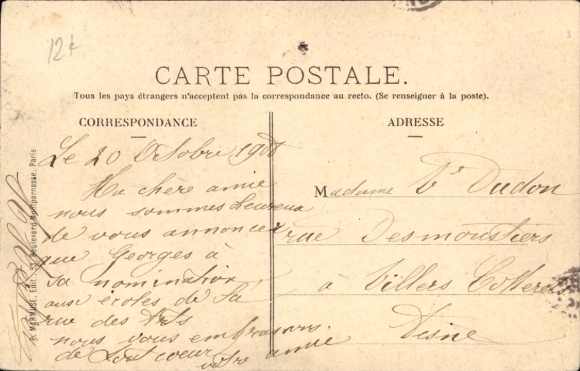 12f
CARTE POSTALE.
Tous les pays étrangers n'acceptent pas la correspondance au recto. (Se renseigner à la poste).
CORRESPONDANCE
Le 20 Octobre
Ma chère amie
nous sommes heureux
de vous annoncer
que Georges à
sa nomination
aux écoles de la
rue des
nous vous embrassons
de tout coeur
votre amie
ADRESSE
Madame Ve Dudon
rue Desmoustiers
à Villers Cotterets
Aisne
Edit. Boulevard Montparnasse, Paris